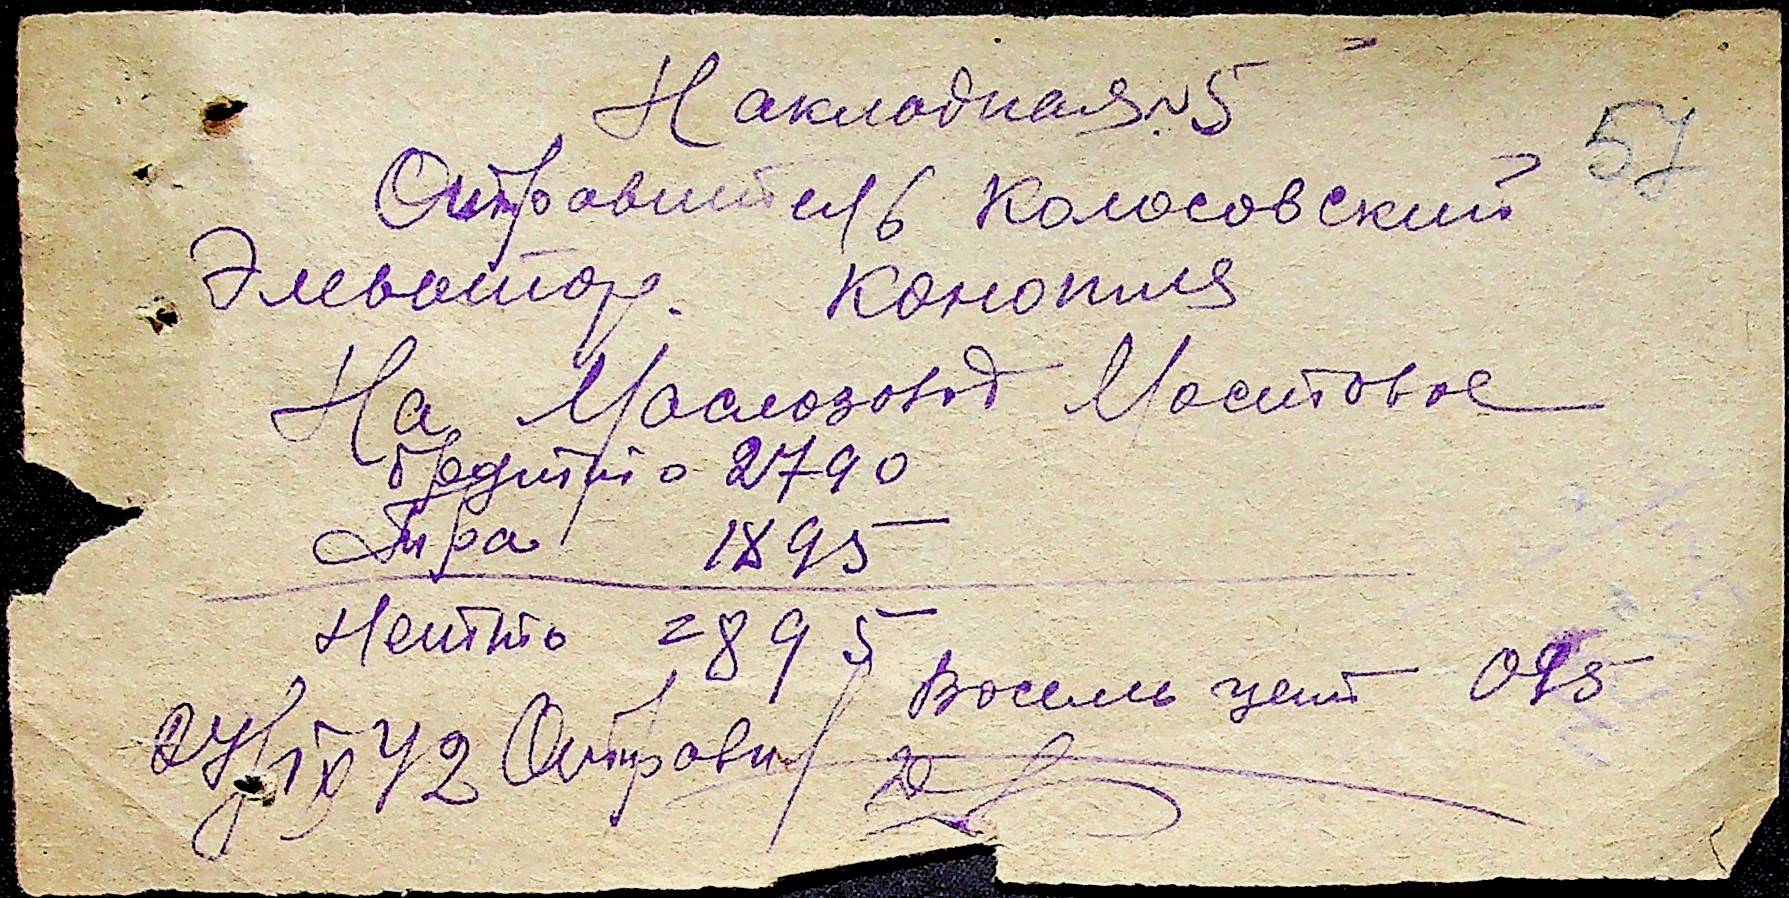 Накладная № 5
57
Отправитель Колосовский
Элеватор. Конопля
На Маслозавод Мостовое
брутто 2790
Тара 1895
Нетто = 895
Восемь цент 095
24/IX 42 Отправил